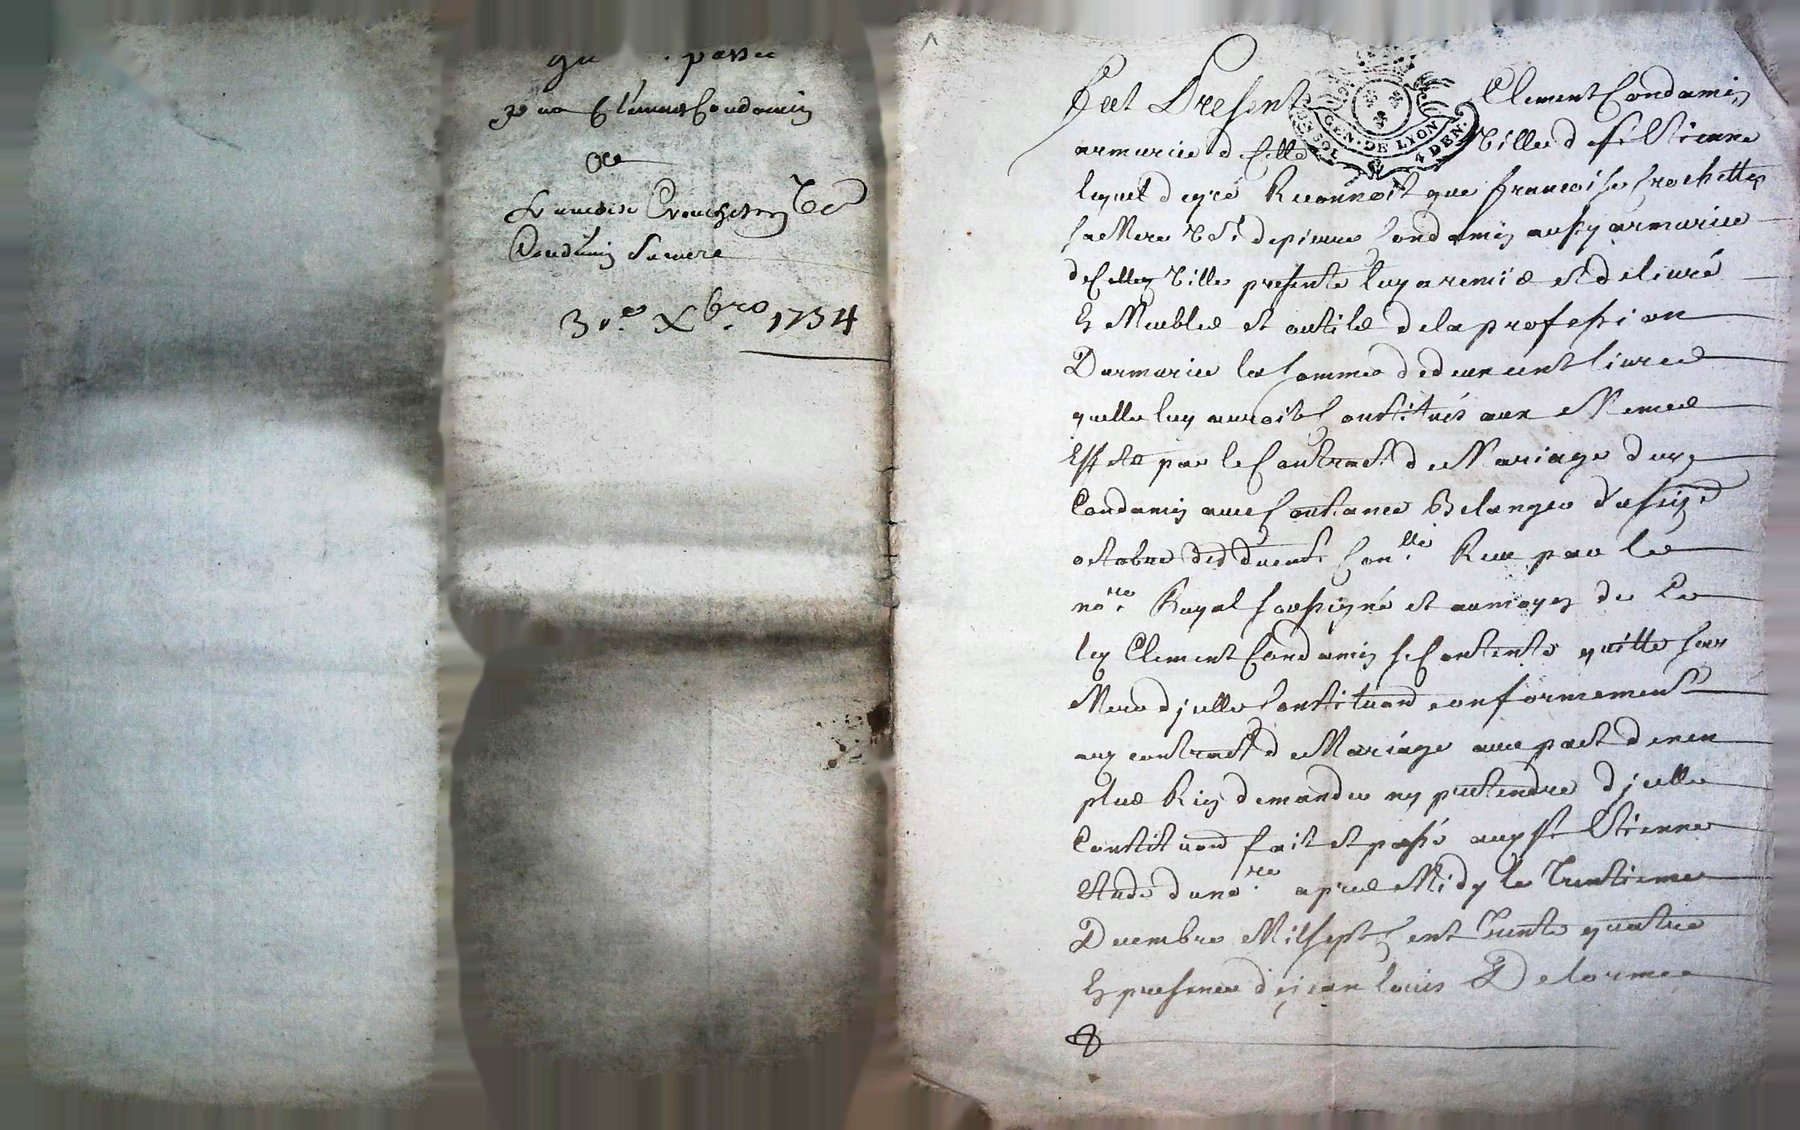 passée
Clement Condamin
a
francoise Crouchet Vve
Condamin sa mere
30e Xbre 1734
GEN. DE LYON
UN SOL 4 DEN.
Est Present Clement Condamin
armurier d Ville de st Etienne
lequel de gré Reconnoit que francoise Crochette
sa Mere Vve de pierre Condamin aussy armurier
Ville presente luy a remis et delivré
En Meubles et outils de la profession
Darmurier la somme de deux cent livres
quelle luy auroit Constitués aux Memes
Effets par le Contract de Mariage dud
Condamin avec Constance Belanger du seize
octobre Reçu par le
nore Royal soussigné et au moyen de Ce
led Clement Condamin se Contente quitte sad
Mere d jcelle Constitution conformement
aud contract de Mariage avec pact de n'en
plus Rien demander ny pretendre d jcelle
Constitution fait et passé aud st Etienne
Etude dud nore apres Midy le Trentieme
Decembre Mil sept Cent Trente quatre
En presence de jean louis Delorme